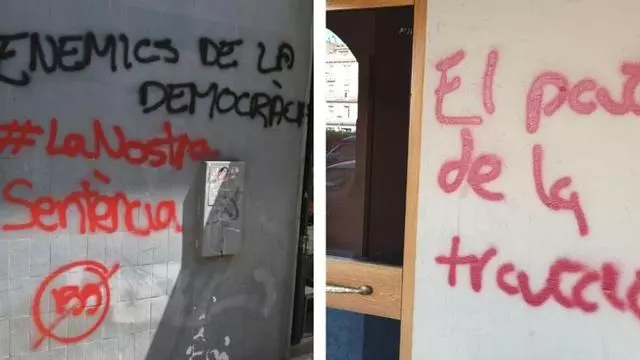 ENEMICS DE LA
DEMOCRÀCIA
#LaNostra
Sentència
155
El pa
de la
traca